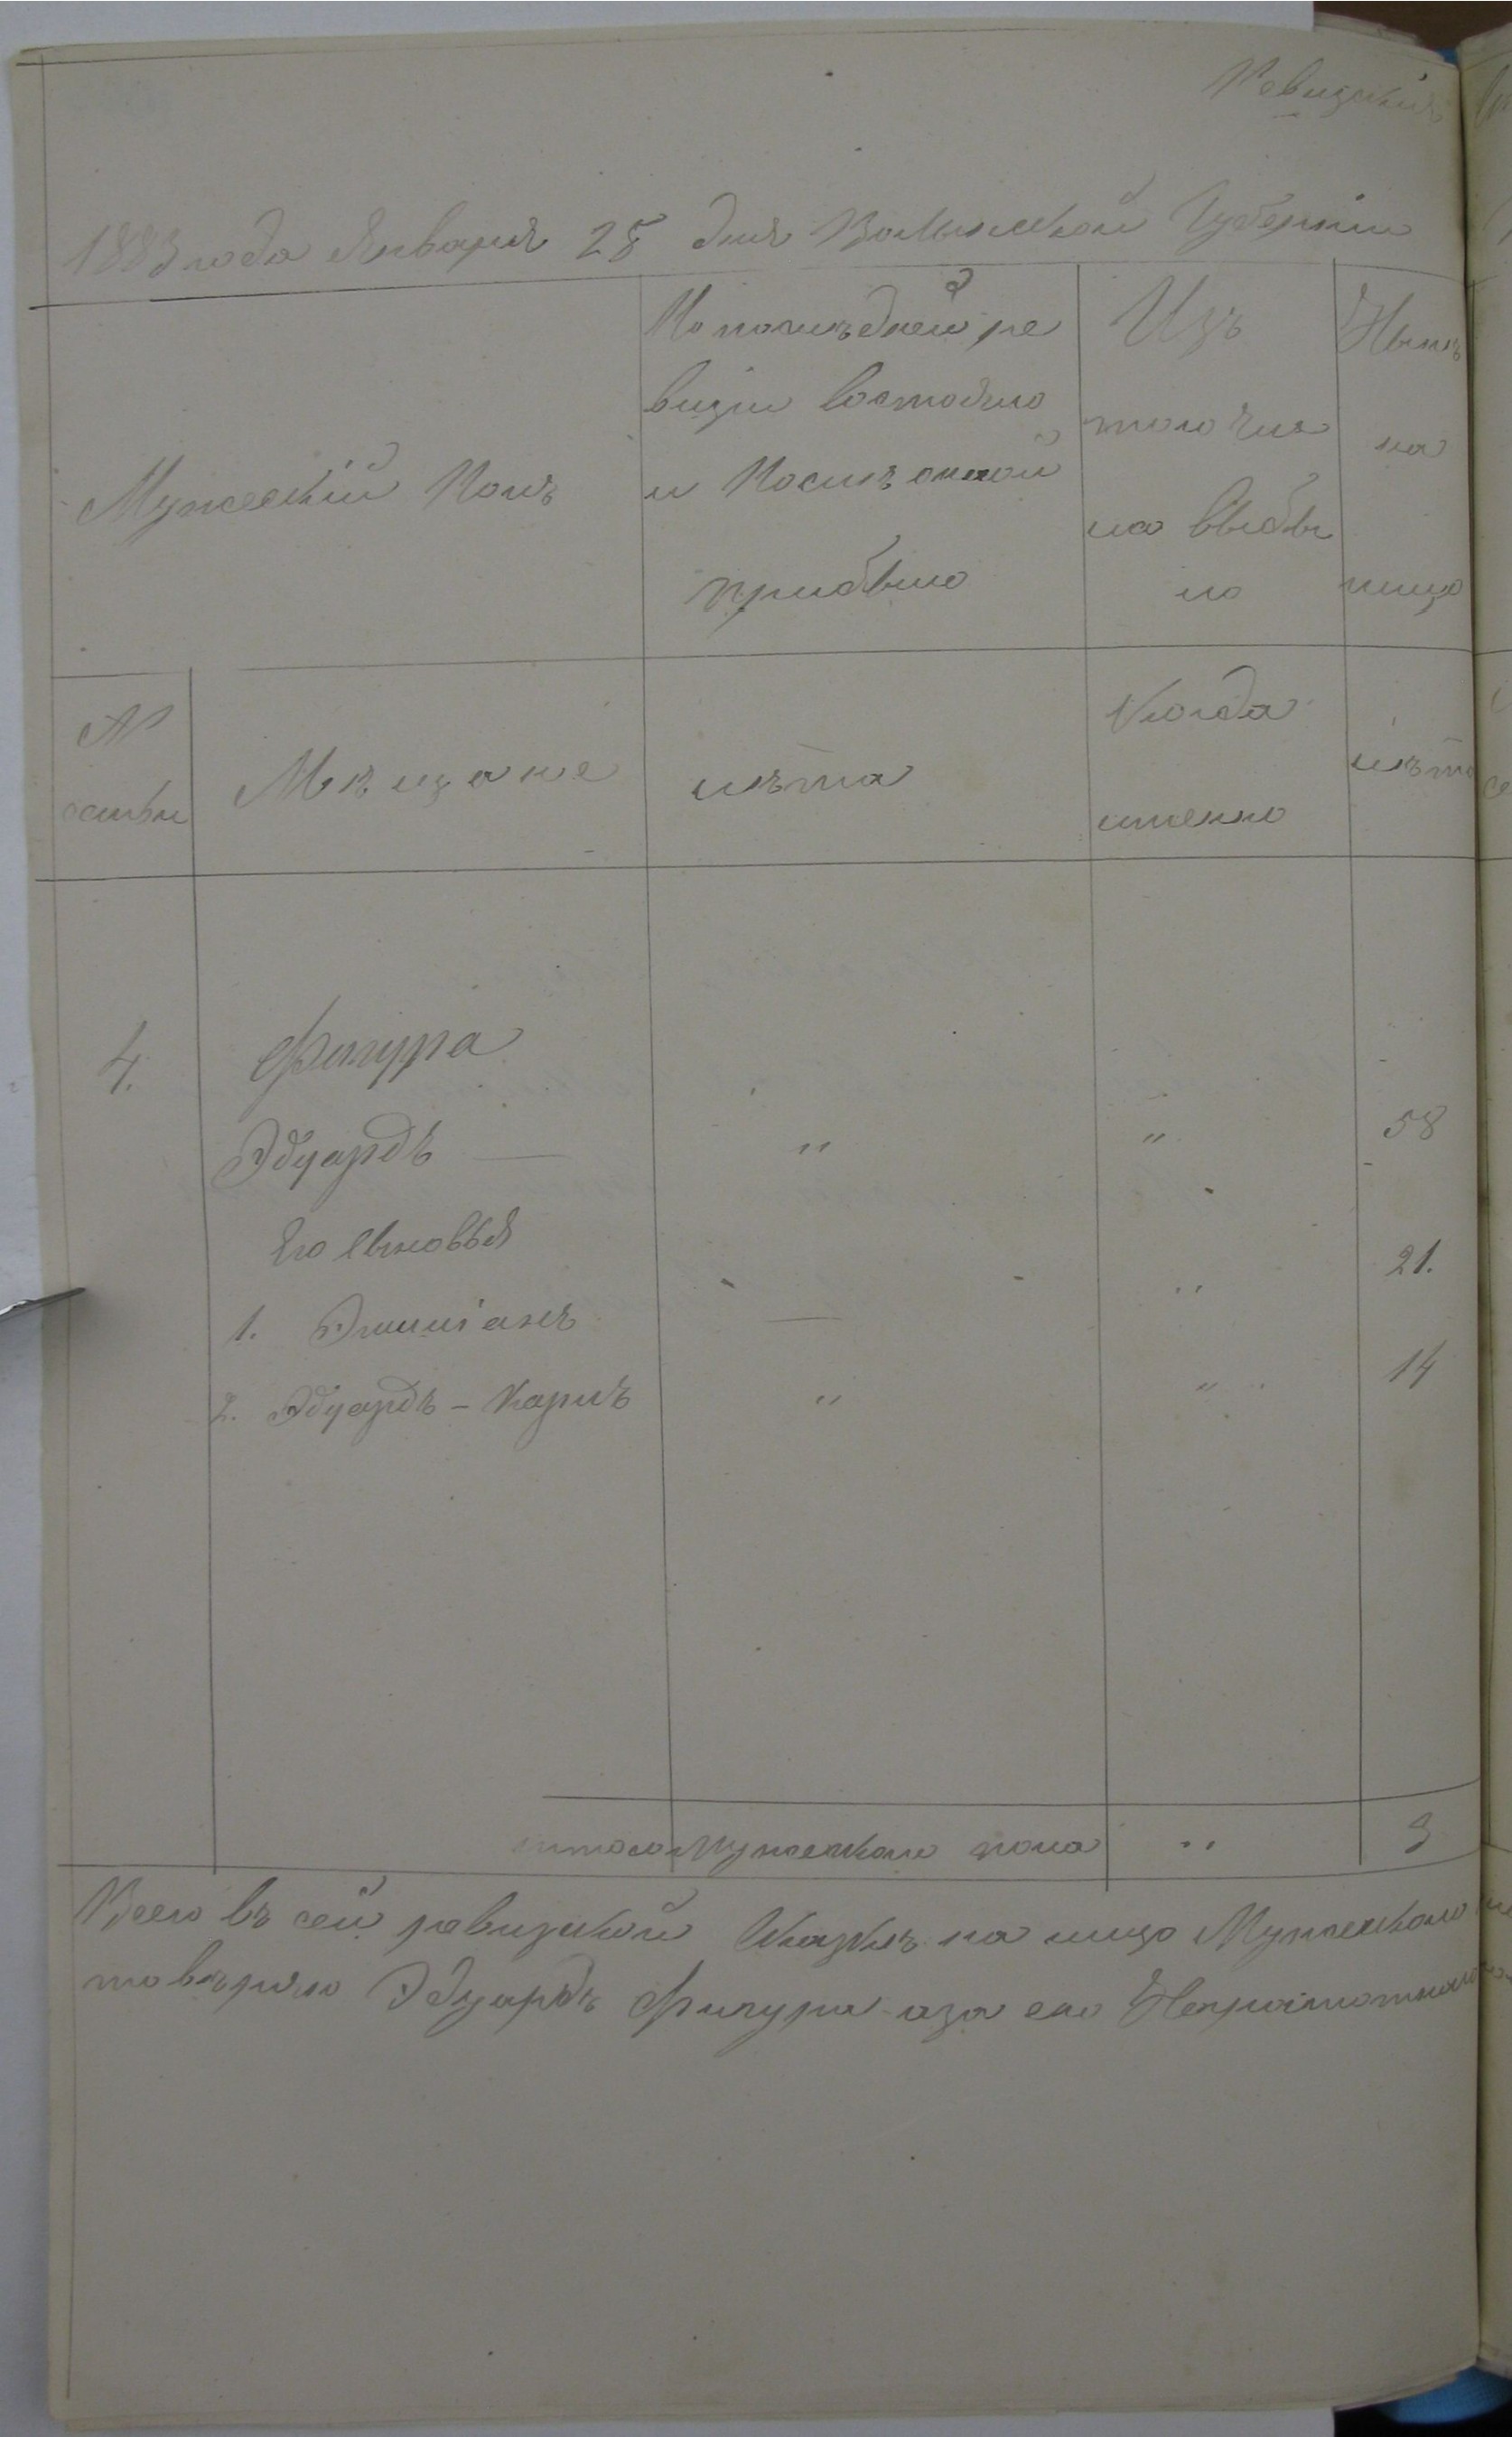 Ревизкия
1883 года Января 28 дня Волынской Губернии
Мужескій Полъ
По последней ре
визіи Состояло
и После оной
прибыло
Изъ
того чис
ла выбы
ло
Ныне
на
лицо
№
семьи
Мѣщане
лѣта
Когда
именно
лѣта
4. Фигура
Эдуардъ — " " 58
Его Сыновья
1. Эмиліанъ — " 21.
2. Эдуардъ - Карлъ " " 14
итого Мужескаго пола " 3
Всего въ сей ревизской Сказкѣ на лицо Мужескаго
Эдуардъ Фигура аза его Неграмотнаго